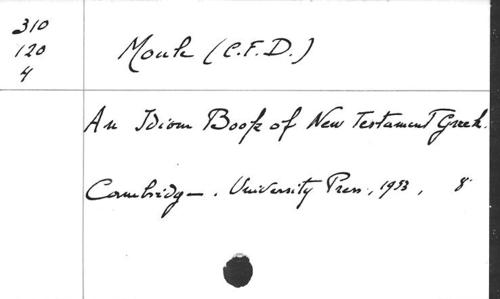 310
120
4
Moule (C.F.D.)
An Idiom Book of New Testament Greek.
Cambridge. University Press, 1953, 8°